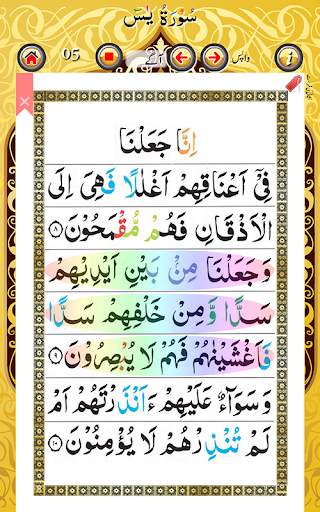 سُوْرَةُ يٰسٓ
05 واپس
اِنَّا جَعَلْنَا
فِیْۤ اَعْنَاقِهِمْ اَغْلٰلًا فَهِیَ اِلَی
الْاَذْقَانِ فَهُمْ مُّقْمَحُوْنَ ۸
وَجَعَلْنَا مِنْۢ بَیْنِ اَیْدِیْهِمْ
سَدًّا وَّمِنْ خَلْفِهِمْ سَدًّا
فَاَغْشَیْنٰهُمْ فَهُمْ لَا یُبْصِرُوْنَ ۹
وَسَوَآءٌ عَلَیْهِمْ ءَاَنْذَرْتَهُمْ اَمْ
لَمْ تُنْذِرْهُمْ لَا یُؤْمِنُوْنَ ۱۰